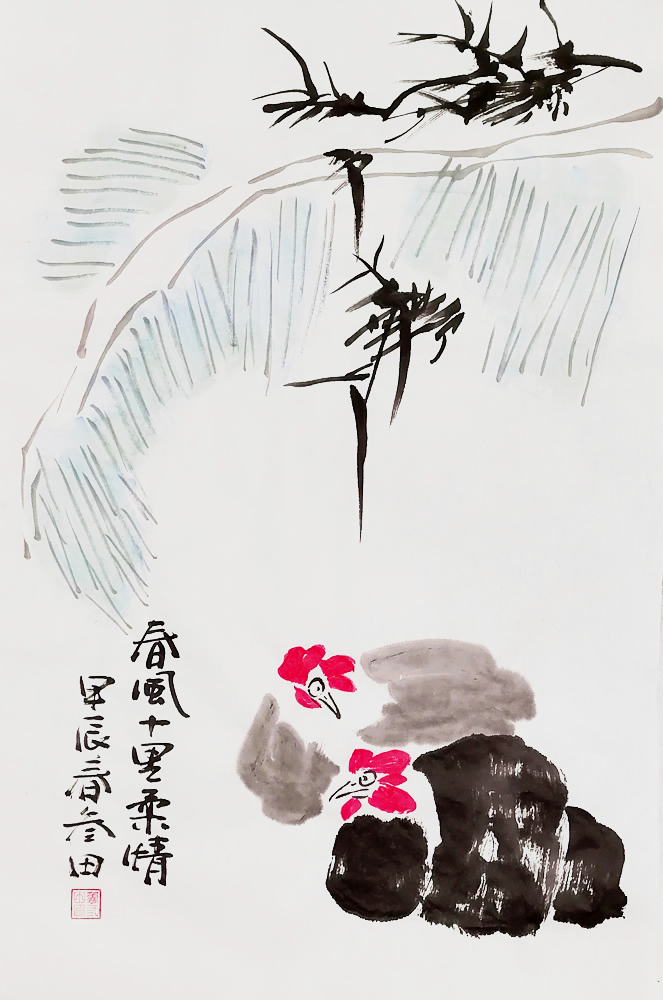 春风十里柔情
甲辰春叁田